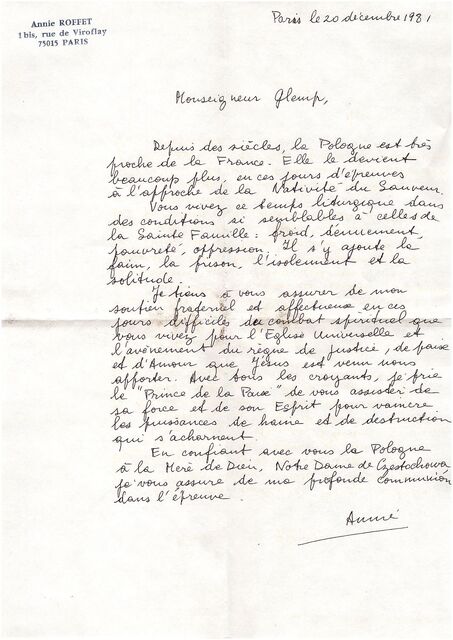 Annie ROFFET
1 bis, rue de Viroflay
75015 PARIS
Paris le 20 décembre 1981
Monseigneur Glemp,
Depuis des siècles, la Pologne est très
proche de la France. Elle le devient
beaucoup plus, en ces jours d'épreuves
à l'approche de la Nativité du Sauveur.
Vous vivez ce temps liturgique dans
des conditions si semblables à celles de
la Sainte Famille : froid, dénuement,
pauvreté, oppression. Il s'y ajoute la
faim, la prison, l'isolement et la
solitude.
Je tiens à vous assurer de mon
soutien fraternel et affectueux en ces
jours difficiles du combat spirituel que
vous vivez pour l'Eglise Universelle et
l'avènement du règne de Justice, de paix
et d'Amour que Jésus est venu nous
apporter. Avec tous les croyants, je prie
le "Prince de la Paix" de vous assister de
sa force et de son Esprit pour vaincre
les puissances de haine et de destruction
qui s'acharnent.
En confiant avec vous la Pologne
à la Mère de Dieu, Notre Dame de Częstochowa
je vous assure de ma profonde communion
dans l'épreuve.
Annie